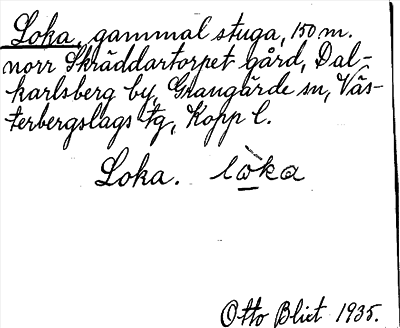 Loka, gammal stuga, 150 m.
norr Skräddartorpet gård, Dal-
karlsberg by, Grangärde sn, Väs-
terbergslags tg, Kopp l.
Loka. lò̠ka
Otto Blixt 1935.